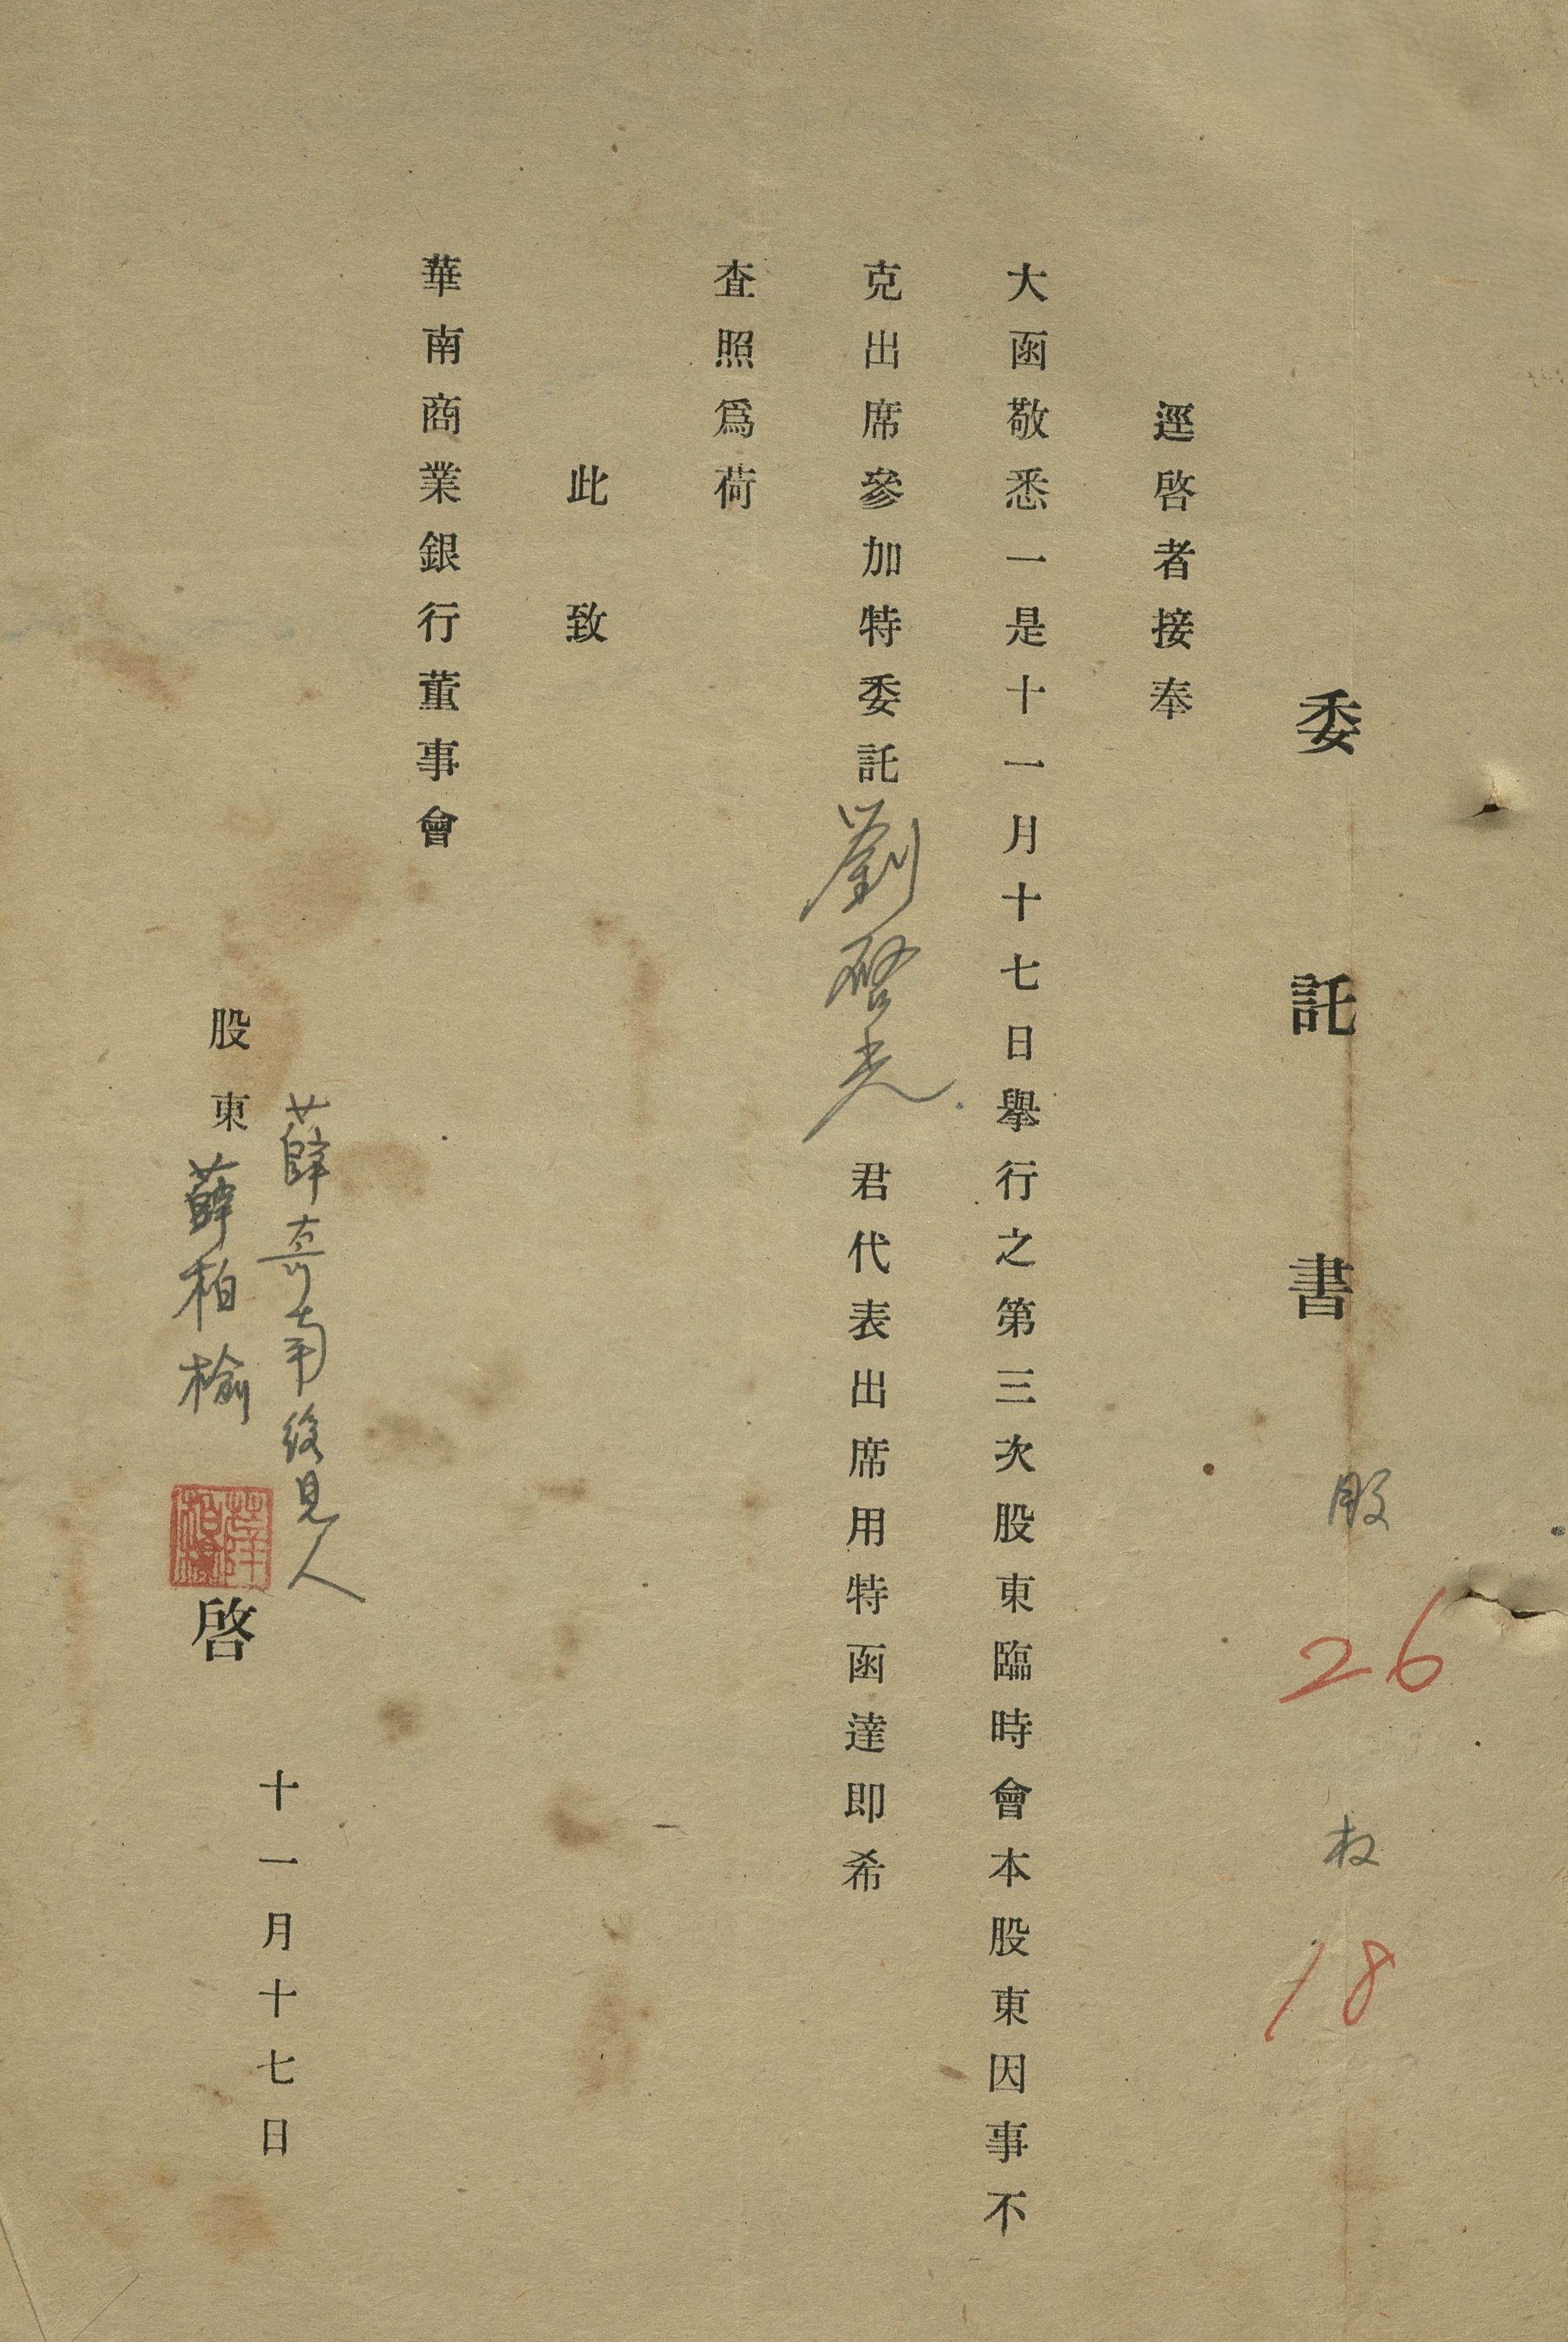 委託書 股 26 权 18
逕啓者接奉
大函敬悉一是十一月十七日擧行之第三次股東臨時會本股東因事不
克出席參加特委託劉啓光君代表出席用特函達即希
査照爲荷
此致
華南商業銀行董事會
薛奇南後見人
股東薛柏榆啓
十一月十七日